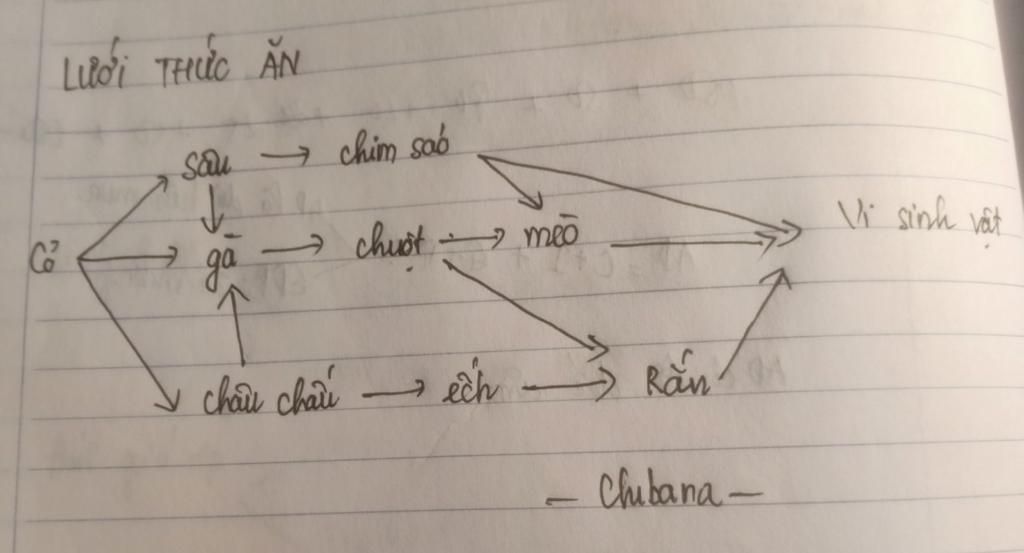 LƯỚI THỨC ĂN
sâu → chim sáo
Cỏ gà → chuột → mèo Vi sinh vật
châu chấu → ếch → Rắn
— Chubana —